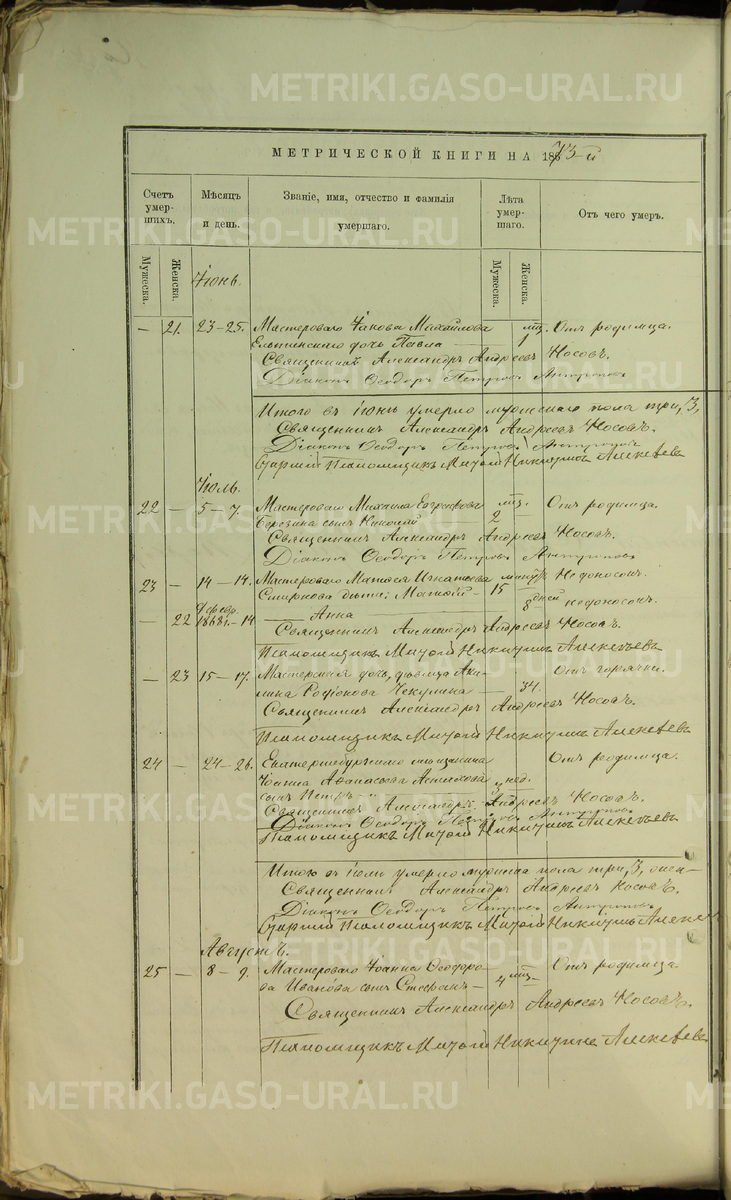 МЕТРИЧЕСКОЙ КНИГИ НА 1873-й
Счетъ умершихъ.
Мѣсяцъ и день.
Званіе, имя, отчество и фамилія умершаго.
Лѣта умершаго.
Отъ чего умеръ.
Мужеска.
Женска.
Мужеска.
Женска.
Іюнь.
— 21. 23-25. Мастероваго Іакова Михайлова Отъ родимца.
дочь Павла — 1 мц.
Священникъ Александръ Андреевъ Носовъ.
Діаконъ Ѳеодоръ Петровъ Антроповъ
Итого въ Іюнѣ умерло мужескаго пола три, 3,
Священникъ Александръ Андреевъ Носовъ.
Діаконъ Ѳеодоръ Петровъ Антроповъ
Старшій Псаломщикъ Алексѣевъ
Іюль.
22 — 5-7. Мастероваго Михаила мц. Отъ родимца.
Березина сынъ Николай 2 —
Священникъ Александръ Андреевъ Носовъ.
Діаконъ Ѳеодоръ Петровъ Антроповъ
23 — 14-14. Мастероваго Матѳея Игнатьева минут. Недоносокъ.
Смирнова дѣти: Матѳей — 15 8 дней недоносокъ.
— 22 14 — Анна
Священникъ Александръ Андреевъ Носовъ.
Псаломщикъ Алексѣевъ
— 23 15-17. Мастерская дочь, дѣвица Отъ горячки.
Чекулина — 34.
Священникъ Александръ Андреевъ Носовъ.
Псаломщикъ Алексѣевъ
24 — 24-26. Екатеринбургскаго мѣщанина Отъ родимца.
Іоанна Аѳанасьева 3 нед.
сынъ Петръ —
Священникъ Александръ Андреевъ Носовъ.
Діаконъ Ѳеодоръ Петровъ Антроповъ
Псаломщикъ Алексѣевъ
Итого въ Іюлѣ умерло мужеска пола три, 3,
Священникъ Александръ Андреевъ Носовъ.
Діаконъ Ѳеодоръ Петровъ Антроповъ
Старшій Псаломщикъ
Августъ.
25 — 8-9. Мастероваго Іоанна Ѳеодоро- мц. Отъ родимца.
ва Иванова сынъ Стефанъ — 4 —
Священникъ Александръ Андреевъ Носовъ.
Псаломщикъ Алексѣевъ
METRIKI.GASO-URAL.RU
METRIKI.GASO-URAL.RU
METRIKI.GASO-URAL.RU
METRIKI.GASO-URAL.RU
METRIKI.GASO-URAL.RU
METRIKI.GASO-URAL.RU
METRIKI.GASO-URAL.RU
METRIKI.GASO-URAL.RU